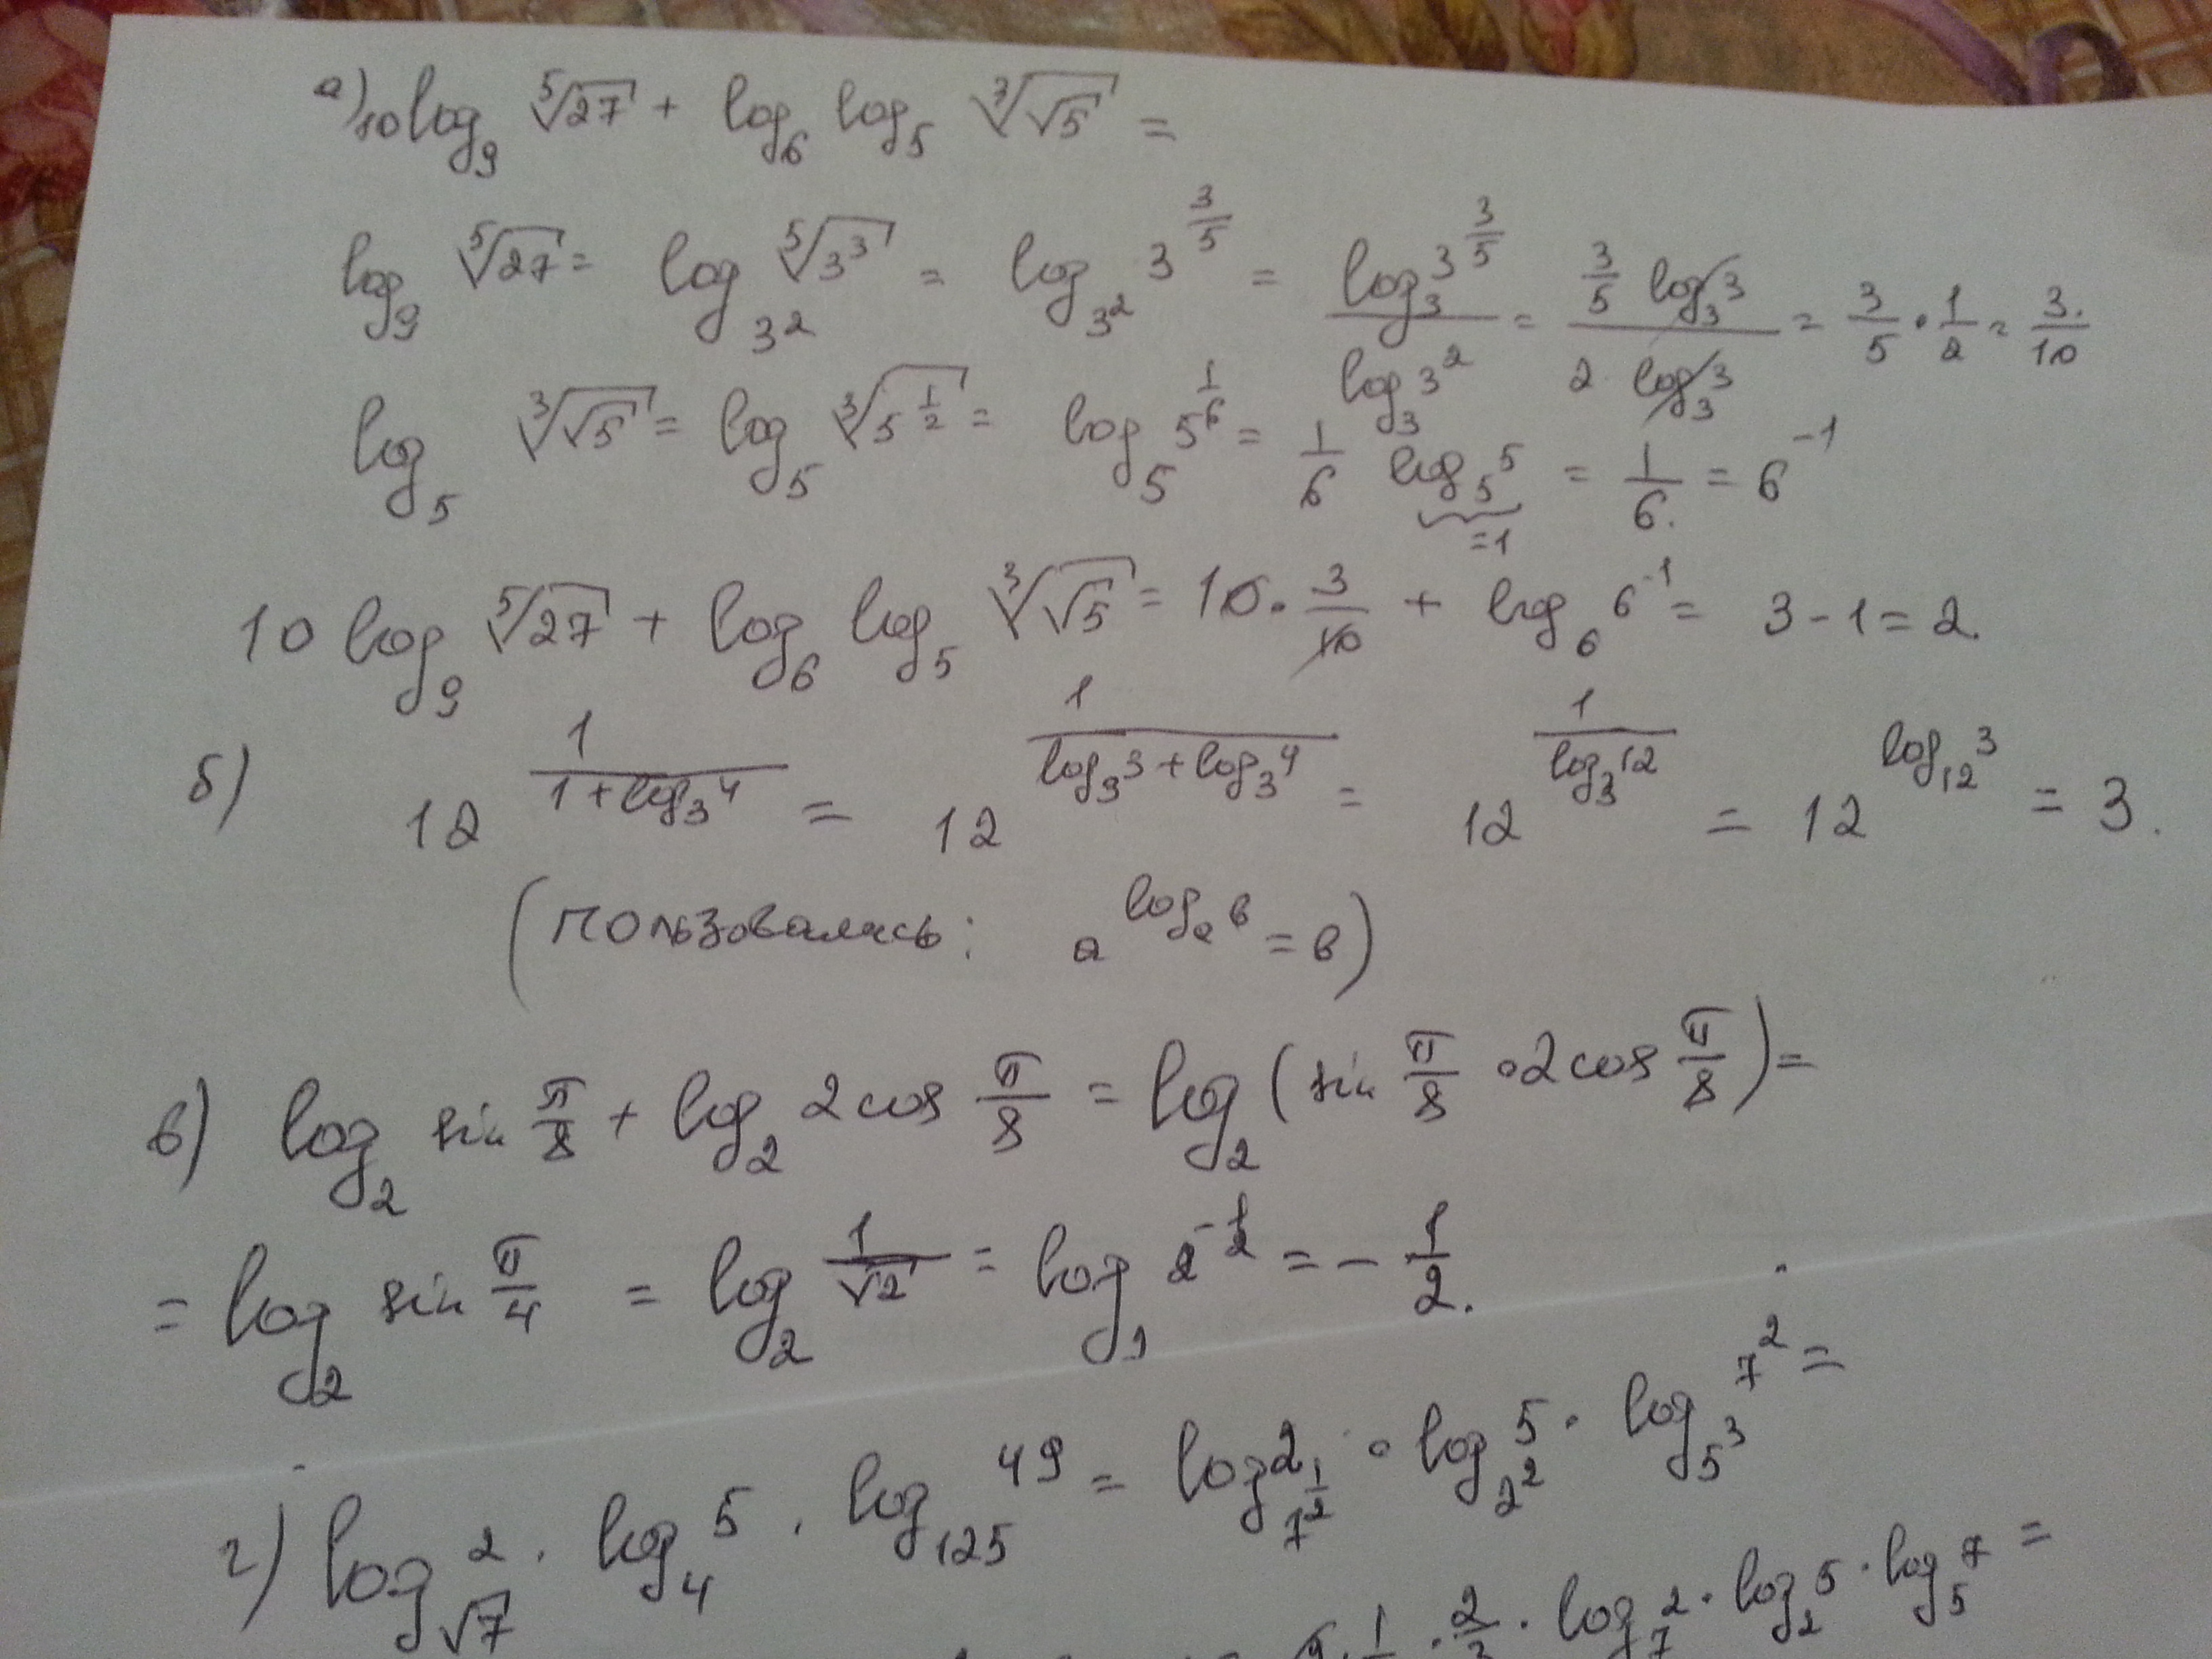 а) 10 log₉ ⁵√27 + log₆ log₅ ⁷√√5 =
log₉ ⁵√27 = log_{3²} ⁵√3³ = log_{3²} 3^{3/5} = (log₃ 3^{3/5})/(log₃ 3²) = (3/5 log₃ 3)/(2 log₃ 3) = 3/5 · 1/2 = 3/10
log₅ ³√√5 = log₅ ³√5^{1/2} = log₅ 5^{1/6} = 1/6 log₅ 5 = 1/6 = 6⁻¹
=1
10 log₉ ⁵√27 + log₆ log₅ ³√√5 = 10 · 3/10 + log₆ 6⁻¹ = 3 - 1 = 2.
б) 12^{1/(1 + log₃ 4)} = 12^{1/(log₃ 3 + log₃ 4)} = 12^{1/log₃ 12} = 12^{log₁₂ 3} = 3.
(пользовалась: a^{logₐ в} = в)
в) log₂ sin π/8 + log₂ 2 cos π/8 = log₂ (sin π/8 · 2 cos π/8) =
= log₂ sin π/4 = log₂ 1/√2 = log₂ 2^{-1/2} = - 1/2.
г) log_{√7} 2 · log₄ 5 · log₁₂₅ 49 = log_{7^{1/2}} 2 · log_{2²} 5 · log_{5³} 7² =
· 2/3 · log₇ 2 · log₂ 5 · log₅ 7 =